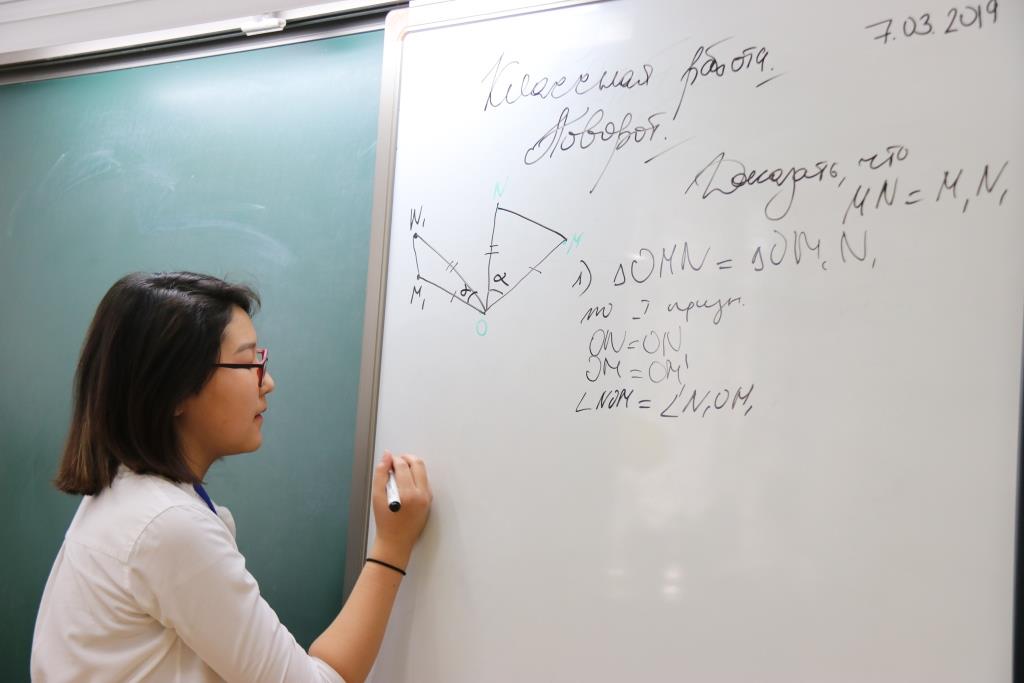 7.03.2019
Классная работа.
Поворот.
Доказать, что
MN = M₁N₁
N
M
N₁
M₁
α
α
O
1) △OMN = △OM₁N₁
по I призн.
ON = ON
OM = OM'
∠NOM = ∠N₁OM₁